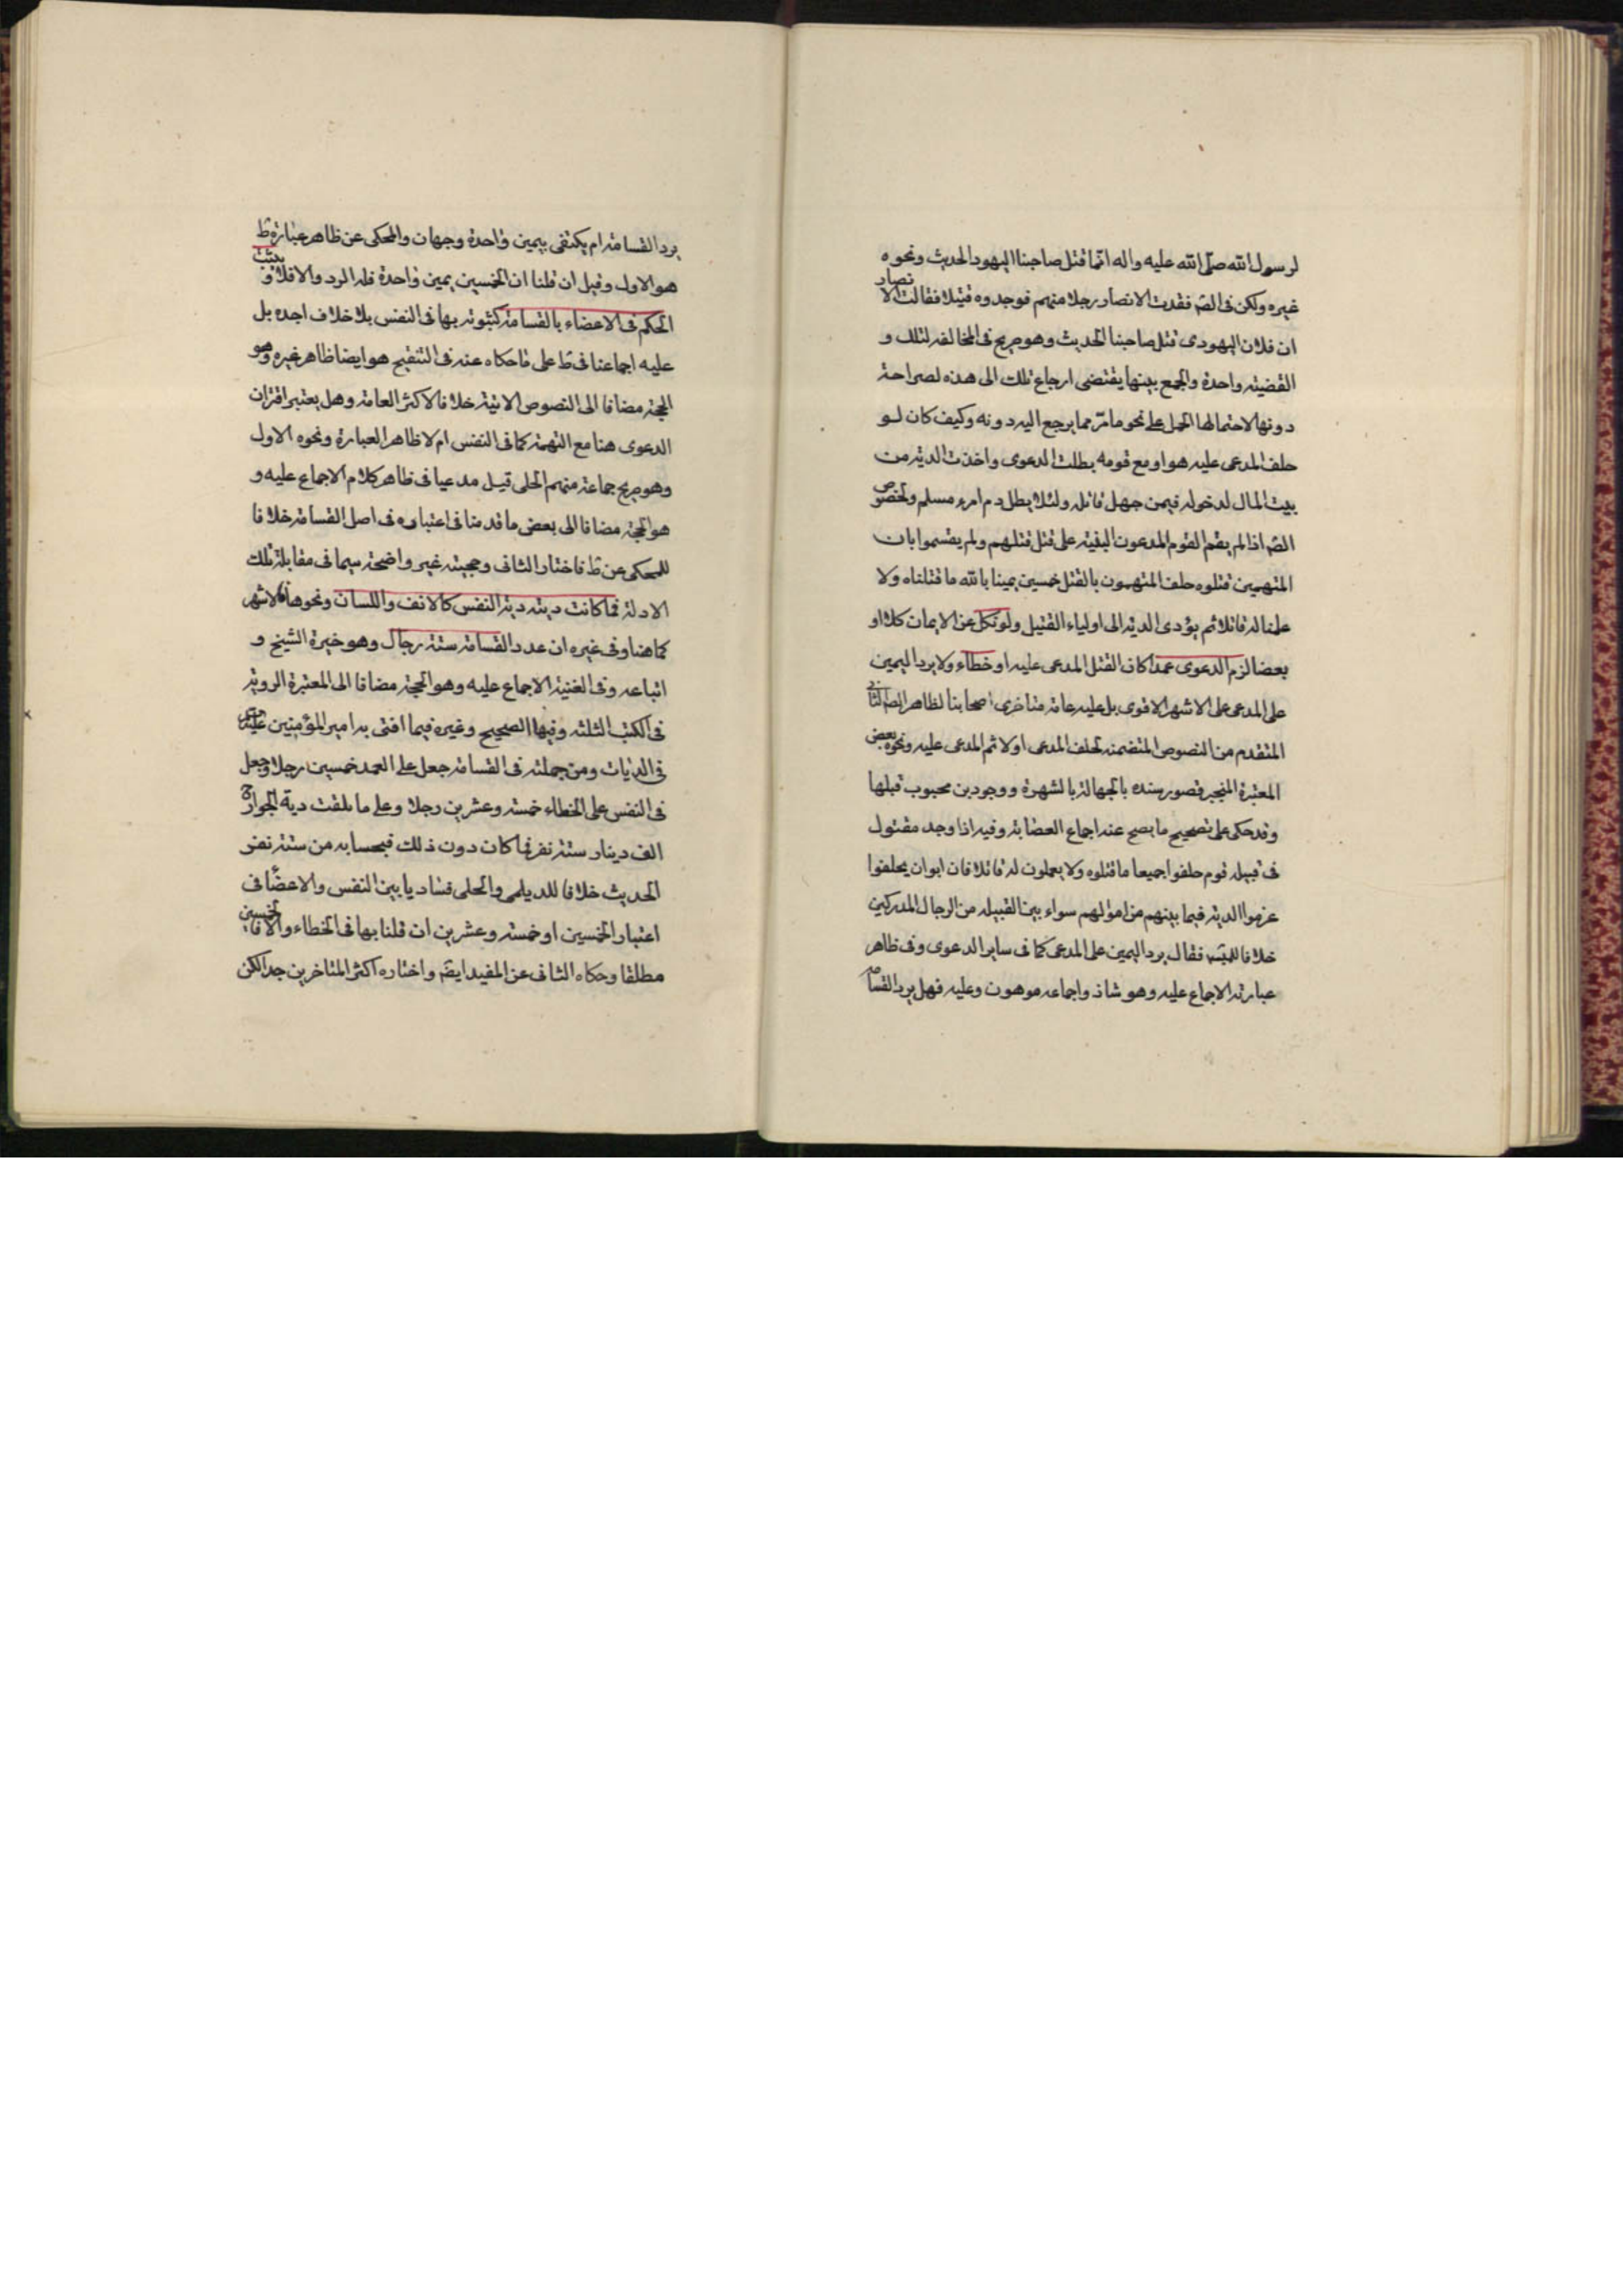 لرسول الله صلى الله عليه واله انما قتل صاحبنا اليهود الحديث ونحوه
غيره ولكن فى الصّ فقدت الانصار رجلا منهم فوجدوه قتيلا فقالت الانصار
ان فلان اليهودى قتل صاحبنا الحديث وهو صريح فى المخالفه لتلك و
القضيته واحدة والجمع بينها يقتضى ارجاع تلك الى هذه لصراحة
دونها لاحتمالها الحمل على نحو ما مرّ مما يرجع اليه دونه وكيف كان لو
حلف المدعى عليه هو او مع قومه بطلت الدعوى واخذت الدية من
بيت المال لدخوله فيمن جهل قاتله ولئلا يطل دم امرء مسلم ولخصوص
الصّ اذا لم يقم القوم المدعون البقيته على قتل قتلهم ولم يقسموا بان
المتهمين قتلوه حلف المتهمون بالقتل خمسين يمينا بالله ما قتلناه ولا
علمنا له قاتلا ثم يؤدى الدية الى اولياء القتيل ولو نكل عن الايمان كلا او
بعضا لزم الدعوى عمدا كان القتل المدعى عليه او خطاء ولا يرد اليمين
على المدعى على الاشهر الاقوى بل عليه عامة متاخرى اصحابنا لظاهر الصّ الثانى
المتقدم من النصوص المتضمنه لحلف المدعى اولا ثم المدعى عليه ونحوه بعض
المعتبرة المنجبر قصور سنده بالجهالة بالشهرة ووجود بن محبوب قبلها
وقد حكى على تصحيح ما يصح عنه اجماع العصابة وفيه اذا وجد مقتول
فى قبيله قوم حلفوا جميعا ما قتلوه ولا يعملون له قاتلا فان ابوا ان يحلفوا
غرموا الدية فيما بينهم من اموالهم سواء بين القبيله من الرجال المدركين
خلافا للمبسّ فقال يرد اليمين على المدعى كما فى ساير الدعوى وفى ظاهر
عبارته الاجماع عليه وهو شاذ واجماعه موهون وعليه فهل يرد القسامة
يرد القسامة ام يكتفى بيمين واحدة وجهان والمحكى عن ظاهر عبارة ط
هو الاول وقيل ان قلنا ان الخمسين يمين واحدة فله الرد والا فلا و يثبت
الحكم فى الاعضاء بالقسامة كثبوته بها فى النفس بلا خلاف اجده بل
عليه اجماعنا فى ط على ما حكاه عنه فى التنقيح هو ايضا ظاهر غيره وهو
الحجة مضافا الى النصوص الاتية خلافا لاكثر العامة وهل يعتبر اقتران
الدعوى هنا مع التهمة كما فى النفس ام لا ظاهر العبارة ونحوه الاول
وهو صريح جماعة منهم الحلى قيل مدعيا فى ظاهر كلام الاجماع عليه و
هو الحجة مضافا الى بعض ما قدمنا فى اعتباره فى اصل القسامة خلافا
للمحكى عن ط فاختار الثانى وحجيته غير واضحة سيما فى مقابلة تلك
الادلة فما كانت ديته دية النفس كالانف واللسان ونحوها فالاشهر
كما هنا وفى غيره ان عدد القسامة ستة رجال وهو خيرة الشيخ و
اتباعه وفى الغنية الاجماع عليه وهو الحجة مضافا الى المعتبرة المروية
فى الكتب الثلثه وفيها الصحيح وغيره فيما افتى به امير المؤمنين
فى الديات ومن جملته فى القسامة جعل على العمد خمسين رجلا وجعل
فى النفس على الخطاء خمسة وعشرين رجلا وعلى ما بلغت دية الجوارح
الف دينار ستة نفر فما كان دون ذلك فبحسابه من ستة نفر
الحديث خلافا للديلمى والحلى فساويا بين النفس والاعضاء فى
اعتبار الخمسين او خمسة وعشرين ان قلنا بها فى الخطاء والا فالخمسين
مطلقا وحكاه الثانى عن المفيد ايضّ واختاره اكثر المتاخرين جدا لكن